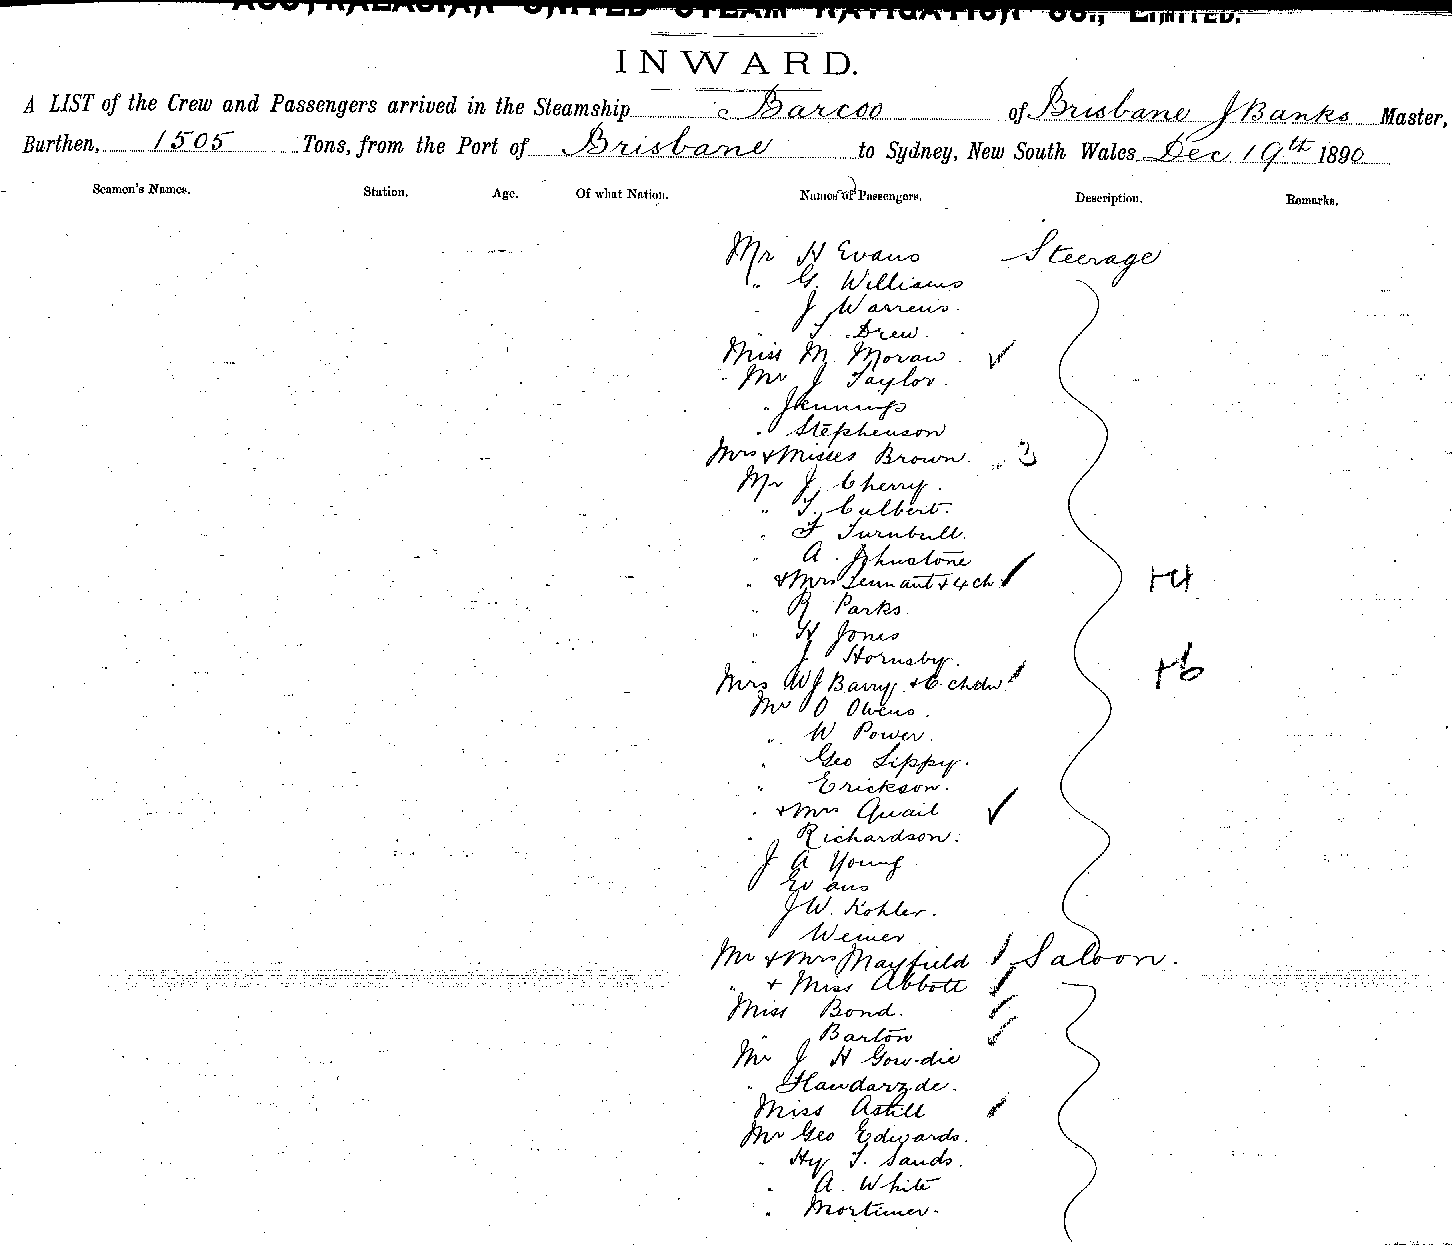 AUSTRALASIAN UNITED STEAM NAVIGATION CO., LIMITED.
INWARD.
A LIST of the Crew and Passengers arrived in the Steamship Barcoo of Brisbane J Banks Master,
Burthen, 1505 Tons, from the Port of Brisbane to Sydney, New South Wales Dec 19th 1890
Seamen's Names. Station. Age. Of what Nation. Names of Passengers. Description. Remarks.
Mr H Evans Steerage
" G. Williams
J Warrens.
T. Drew.
Miss M Moran ✓
Mr J Taylor.
" Jennings
" Stephenson
Mrs & Misses Brown. 3
Mr J Cherry.
" T. Culbert.
" F Turnbull.
" A. Johnstone
" & Mrs Tennant & 4 ch +4
" R Parks.
" H Jones
J Hornsby.
Mrs W J Barry & 6 chdn +6
Mr O Owens.
" W Power.
" Geo Lippy.
" Erickson.
" & Mrs Quail ✓
" Richardson.
J A Young
Evans
J W. Kohler.
Weiner
Mr & Mrs Mayfield Saloon.
" & Miss Abbott
Miss Bond.
" Barton
Mr J H Gowdie
"
Miss Astill
Mr Geo Edwards.
" Hy T. Sands.
" A. White
" Mortimer.